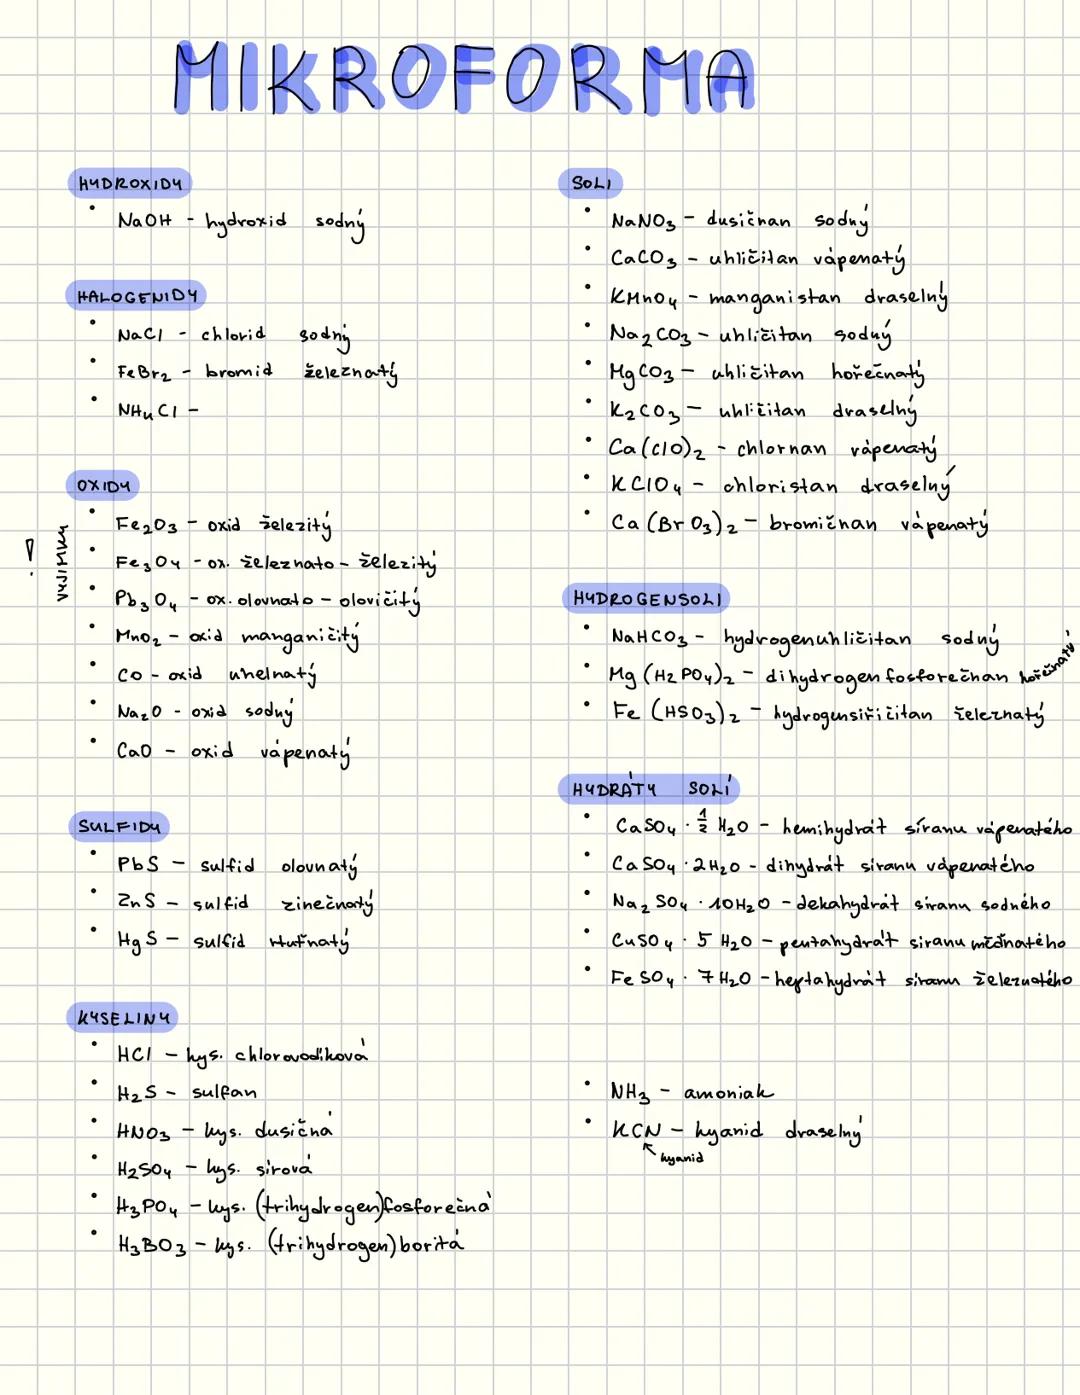 MIKROFORMA
HYDROXIDY
• NaOH - hydroxid sodný
HALOGENIDY
• NaCl - chlorid sodný
• FeBr₂ - bromid železnatý
• NH₄Cl -
OXIDY
! VÝJIMKY
• Fe₂O₃ - oxid železitý
• Fe₃O₄ - ox. železnato - železitý
• Pb₃O₄ - ox. olovnato - olovičitý
• MnO₂ - oxid manganičitý
• CO - oxid uhelnatý
• Na₂O - oxid sodný
• CaO - oxid vápenatý
SULFIDY
• PbS - sulfid olovnatý
• ZnS - sulfid zinečnatý
• HgS - sulfid rtuťnatý
KYSELINY
• HCl - kys. chlorovodíková
• H₂S - sulfan
• HNO₃ - kys. dusičná
• H₂SO₄ - kys. sírová
• H₃PO₄ - kys. (trihydrogen)fosforečná
• H₃BO₃ - kys. (trihydrogen)boritá
SOLI
• NaNO₃ - dusičnan sodný
• CaCO₃ - uhličitan vápenatý
• KMnO₄ - manganistan draselný
• Na₂CO₃ - uhličitan sodný
• MgCO₃ - uhličitan hořečnatý
• K₂CO₃ - uhličitan draselný
• Ca(ClO)₂ - chlornan vápenatý
• KClO₄ - chloristan draselný
• Ca(BrO₃)₂ - bromičnan vápenatý
HYDROGENSOLI
• NaHCO₃ - hydrogenuhličitan sodný
• Mg(H₂PO₄)₂ - dihydrogenfosforečnan hořečnatý
• Fe(HSO₃)₂ - hydrogensiřičitan železnatý
HYDRÁTY SOLÍ
• CaSO₄ · ½ H₂O - hemihydrát síranu vápenatého
• CaSO₄ · 2H₂O - dihydrát síranu vápenatého
• Na₂SO₄ · 10H₂O - dekahydrát síranu sodného
• CuSO₄ · 5 H₂O - pentahydrát síranu měďnatého
• FeSO₄ · 7H₂O - heptahydrát síranu železnatého
• NH₃ - amoniak
• KCN - kyanid draselný
kyanid